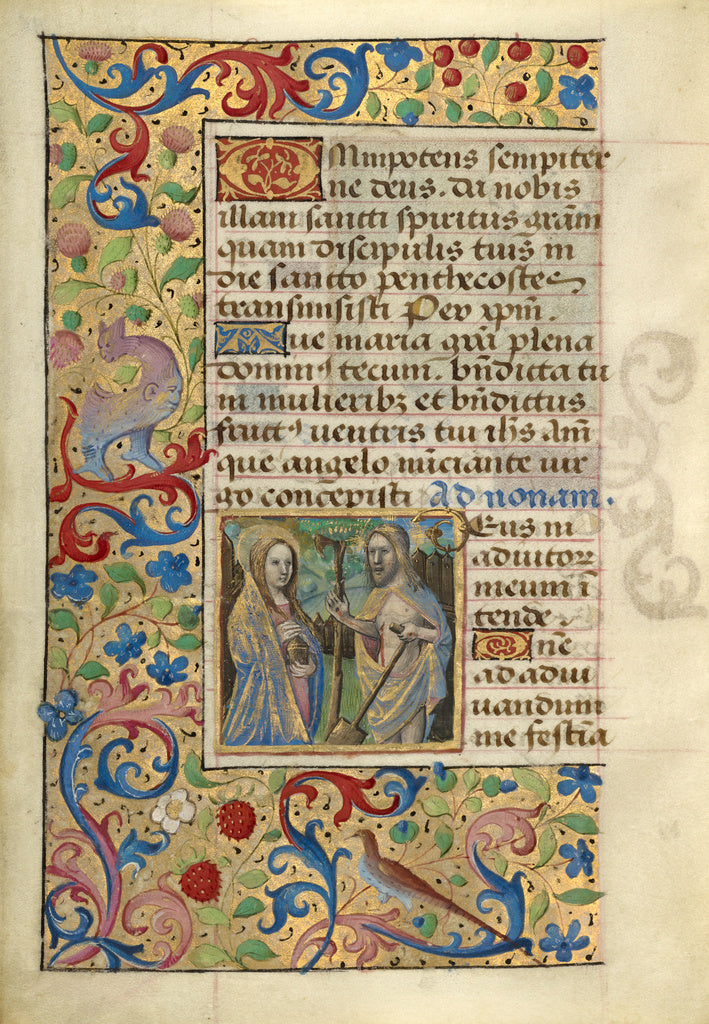 Omnipotens sempiter
ne deus. da nobis
illam sancti spiritus grãm
quam discipulis tuis in
die sancto penthecostes
transmisisti Per xpm̃.
Aue maria grã plena
dominꝰ tecum. bñdicta tu
in mulieribꝫ et bñdictus
fructꝰ uentris tui ihs̃ Am̃
que angelo nũciante uir
go concepisti Ad nonam.
Deus in
adiutor
meum ĩ
tende
Dñe
ad adiu
uandum
me festĩa